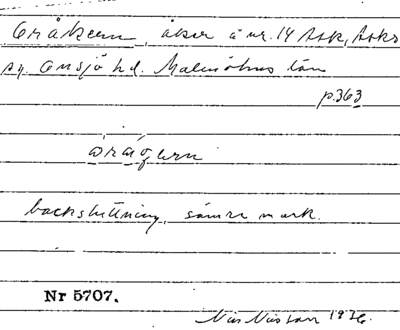 Oråkern, åker å nr. 14 Ask, Asks
sn. Onsjö hd. Malmöhus län
p. 363
backsluttning, sämre mark.
Nr 5707.
Nils Nilsson 1936.